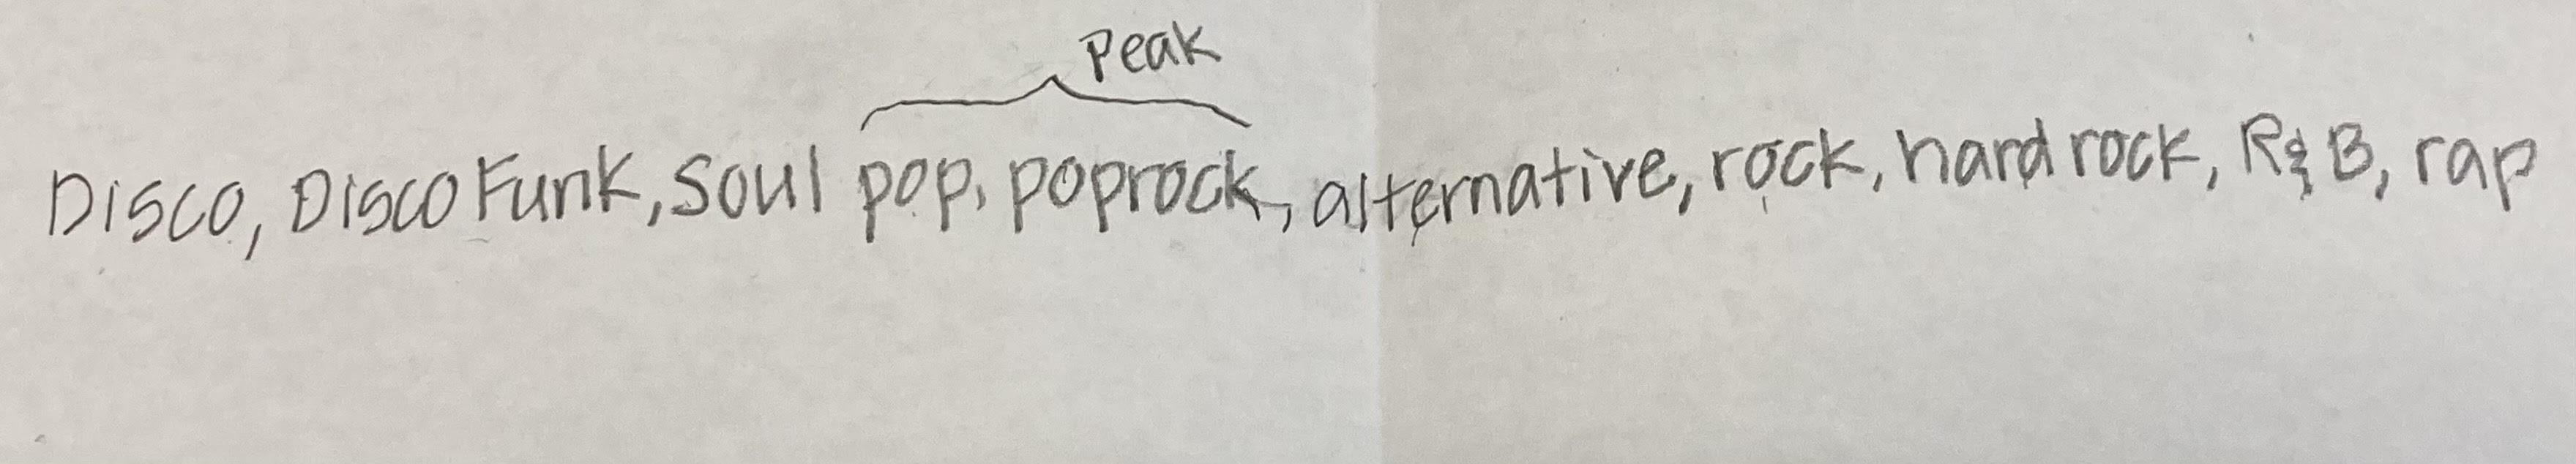 Peak
Disco, Disco Funk, soul pop, poprock, alternative, rock, hard rock, R&B, rap